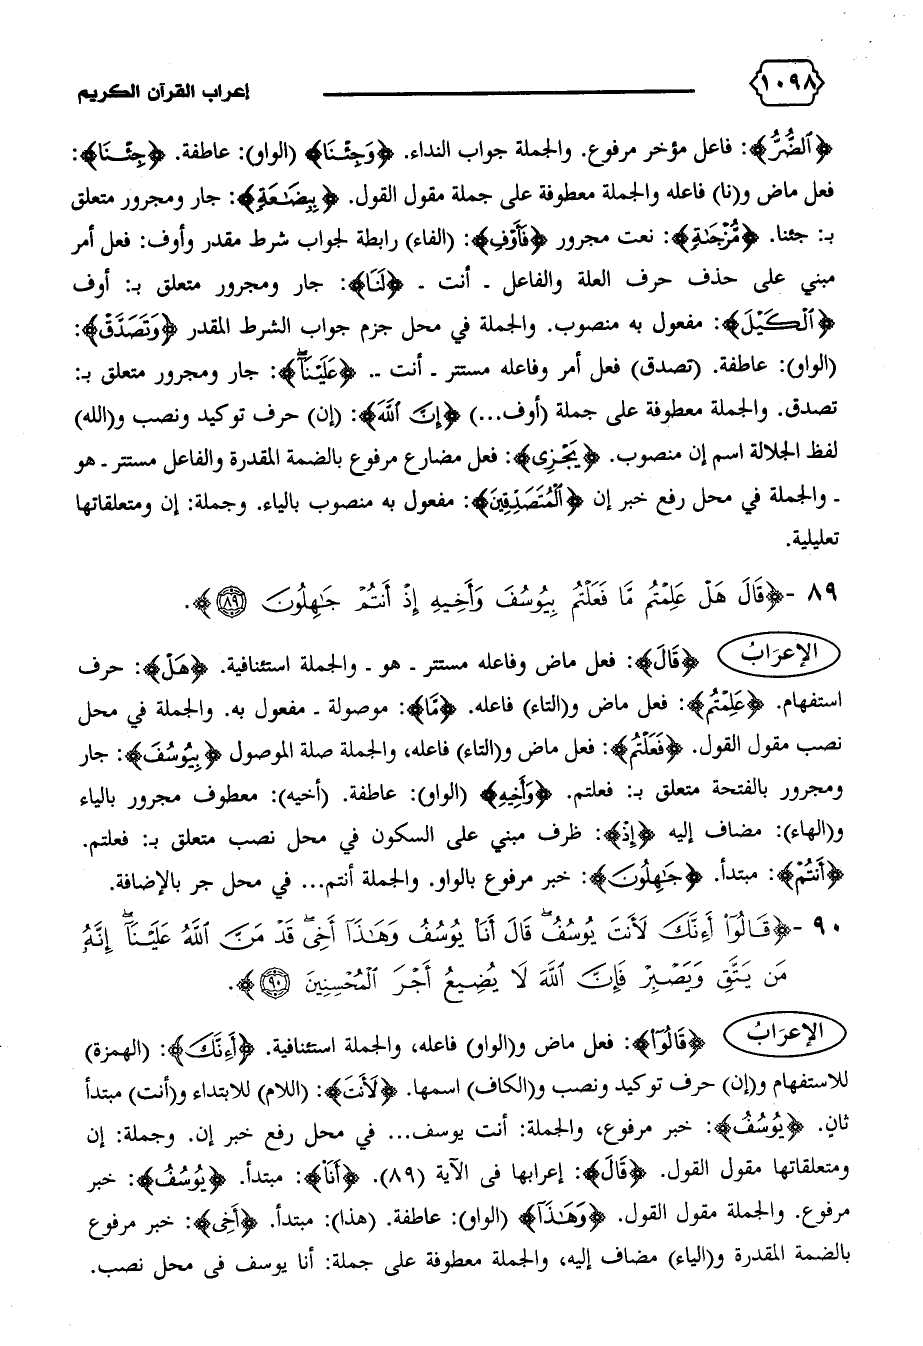 ١٠٩٨ إعراب القرآن الكريم
﴿ٱلضُّرُّ﴾: فاعل مؤخر مرفوع. والجملة جواب النداء. ﴿وَجِئْنَا﴾ (الواو): عاطفة. ﴿جِئْنَا﴾:
فعل ماض و(نا) فاعله والجملة معطوفة على جملة مقول القول. ﴿بِبِضَـٰعَةٍ﴾: جار ومجرور متعلق
بـ: جئنا. ﴿مُّزْجَىٰةٍ﴾: نعت مجرور ﴿فَأَوْفِ﴾: (الفاء) رابطة لجواب شرط مقدر وأوف: فعل أمر
مبني على حذف حرف العلة والفاعل ـ أنت ـ ﴿لَنَا﴾: جار ومجرور متعلق بـ: أوف
﴿ٱلْكَيْلَ﴾: مفعول به منصوب. والجملة في محل جزم جواب الشرط المقدر ﴿وَتَصَدَّقْ﴾:
(الواو): عاطفة. (تصدق) فعل أمر وفاعله مستتر ـ أنت .. ﴿عَلَيْنَآ ۖ﴾: جار ومجرور متعلق بـ:
تصدق. والجملة معطوفة على جملة (أوف...) ﴿إِنَّ ٱللَّهَ﴾: (إن) حرف توكيد ونصب و(الله)
لفظ الجلالة اسم إن منصوب. ﴿يَجْزِى﴾: فعل مضارع مرفوع بالضمة المقدرة والفاعل مستتر ـ هو
ـ والجملة في محل رفع خبر إن ﴿ٱلْمُتَصَدِّقِينَ﴾: مفعول به منصوب بالياء. وجملة: إن ومتعلقاتها
تعليلية.
٨٩ - ﴿قَالَ هَلْ عَلِمْتُم مَّا فَعَلْتُم بِيُوسُفَ وَأَخِيهِ إِذْ أَنتُمْ جَـٰهِلُونَ ٨٩﴾.
الإعرَابُ ﴿قَالَ﴾: فعل ماض وفاعله مستتر ـ هو ـ والجملة استئنافية. ﴿هَلْ﴾: حرف
استفهام. ﴿عَلِمْتُم﴾: فعل ماض و(التاء) فاعله. ﴿مَّا﴾: موصولة ـ مفعول به. والجملة في محل
نصب مقول القول. ﴿فَعَلْتُم﴾: فعل ماض و(التاء) فاعله، والجملة صلة الموصول ﴿بِيُوسُفَ﴾: جار
ومجرور بالفتحة متعلق بـ: فعلتم. ﴿وَأَخِيهِ﴾ (الواو): عاطفة. (أخيه): معطوف مجرور بالياء
و(الهاء): مضاف إليه ﴿إِذْ﴾: ظرف مبني على السكون في محل نصب متعلق بـ: فعلتم.
﴿أَنتُمْ﴾: مبتدأ. ﴿جَـٰهِلُونَ﴾: خبر مرفوع بالواو. والجملة أنتم... في محل جر بالإضافة.
٩٠ - ﴿قَالُوٓا۟ أَءِنَّكَ لَأَنتَ يُوسُفُ ۖ قَالَ أَنَا۠ يُوسُفُ وَهَـٰذَآ أَخِى ۖ قَدْ مَنَّ ٱللَّهُ عَلَيْنَآ ۖ إِنَّهُۥ
مَن يَتَّقِ وَيَصْبِرْ فَإِنَّ ٱللَّهَ لَا يُضِيعُ أَجْرَ ٱلْمُحْسِنِينَ ٩٠﴾.
الإعرَابُ ﴿قَالُوٓا۟﴾: فعل ماض و(الواو) فاعله، والجملة استئنافية. ﴿أَءِنَّكَ﴾: (الهمزة)
للاستفهام و(إن) حرف توكيد ونصب و(الكاف) اسمها. ﴿لَأَنتَ﴾: (اللام) للابتداء و(أنت) مبتدأ
ثانٍ. ﴿يُوسُفُ﴾: خبر مرفوع، والجملة: أنت يوسف... في محل رفع خبر إن. وجملة: إن
ومتعلقاتها مقول القول. ﴿قَالَ﴾: إعرابها في الآية (٨٩). ﴿أَنَا۠﴾: مبتدأ. ﴿يُوسُفُ﴾: خبر
مرفوع. والجملة مقول القول. ﴿وَهَـٰذَآ﴾ (الواو): عاطفة. (هذا): مبتدأ. ﴿أَخِى﴾: خبر مرفوع
بالضمة المقدرة و(الياء) مضاف إليه، والجملة معطوفة على جملة: أنا يوسف في محل نصب.